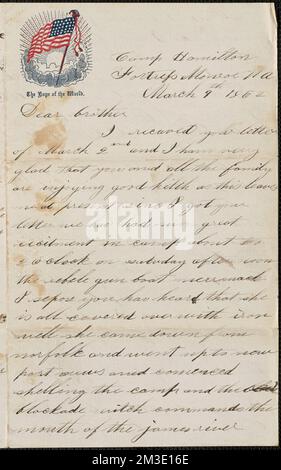 The Hope of the World.
Camp Hamilton
Fortress Monroe Va
March 9th 1862
Dear brother
I receved your letter
of March 2nd and I am very
glad that you and all the family
are enjoying good helth as this leaves
me at present since I got your
letter we had great
excitment in camp about
o clock on saturday after noon
the rebele gun boat merrimack
I supose you hav heard that she
is all covered over with iron
well she came down from
norfolk and went up to new
port and comenced
shelling the camp and the
blockade witch commands the
mouth of the james river
alamy
Image ID: 3M3E16E
www.alamy.com